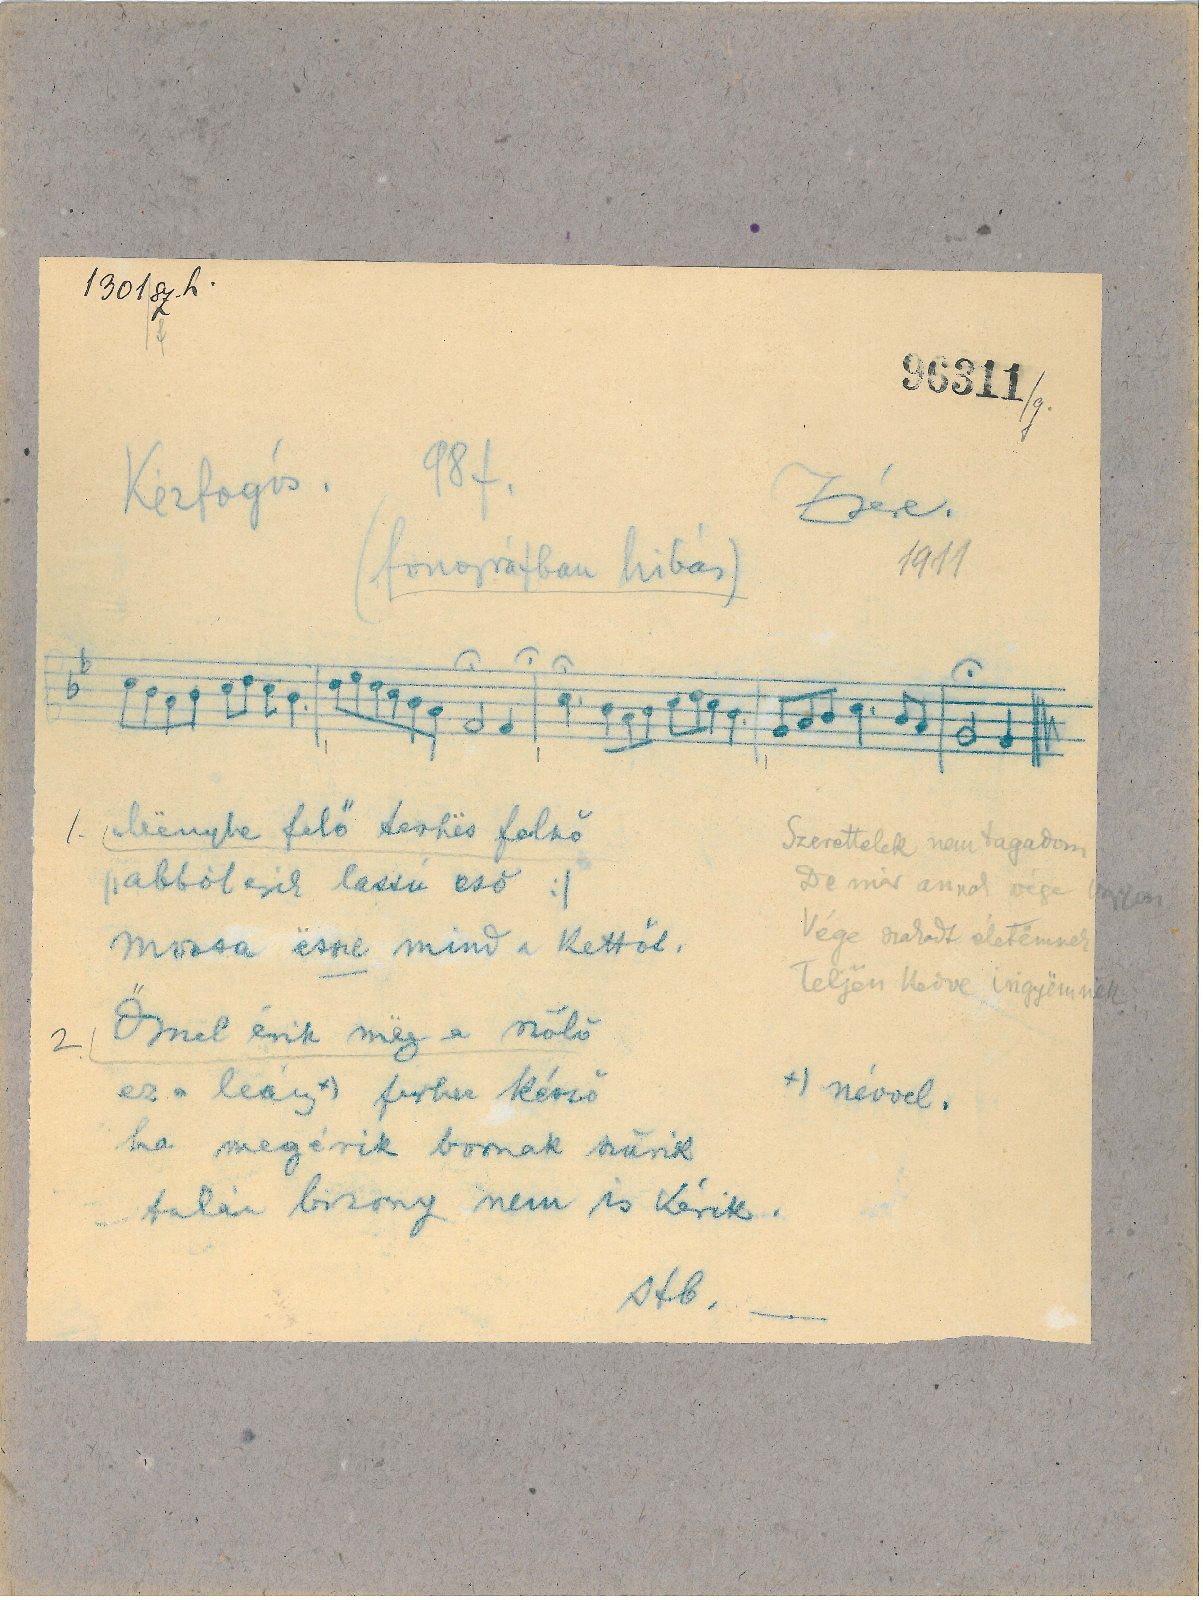 1301 sz. h.
96311/g.
Kézfogós. 98 f. Zsére.
(fonográfban hibás) 1911
1. Mënybe felő terhës felhő
abból esik lassú eső :|
Mossa ësne mind a kettőt.
2. Ősszel érik mëg a szőlő
ez a leány +) férhez késző
ha megérik bornak szűrik
talán bizony nem is kérik.
stb.
Szerettelek nem tagadom
De már annak vége
Vége szakadt életëmnek
Teljën kedve irigyëmnek
+) névvel.